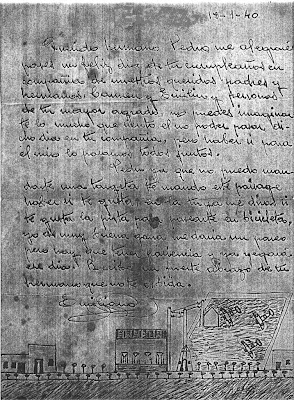 19-1-40
Querido hermano Pedro me alegraré
pases un feliz día de tu cumpleaños en
compañia de nuestros queridos padres y
hermanos Carmen y Emilin y personas
de tu mayor agrado, no puedes imaginar
te lo mucho que siento el no poder pasar di
cho dia en tu compañia, pero haber si para
el año lo pasamos todos juntos.
Pedro ya que no puedo man
darte una targeta te mando este paisage
haber si te gusta, en la tuya me dices si
te gusta la vista para pasearte en bicicleta,
yo de muy buena gana me daria un paseo
pero hay que tener paciencia y ya llegará
ese dia. Recibe un fuerte abrazo de tu
hermano que no te olvida.
Emiliano